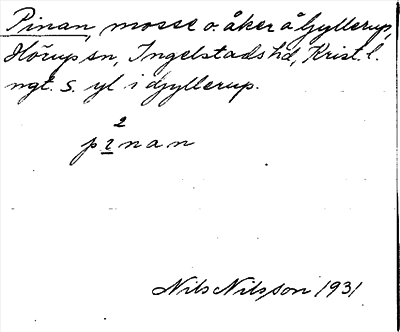 Pinan, mosse o. åker å Gyllerup,
Hörups sn, Ingelstads hd, Krist. l.
ngt. S. yl i Gyllerup.
2
pınan
Nils Nilsson 1931